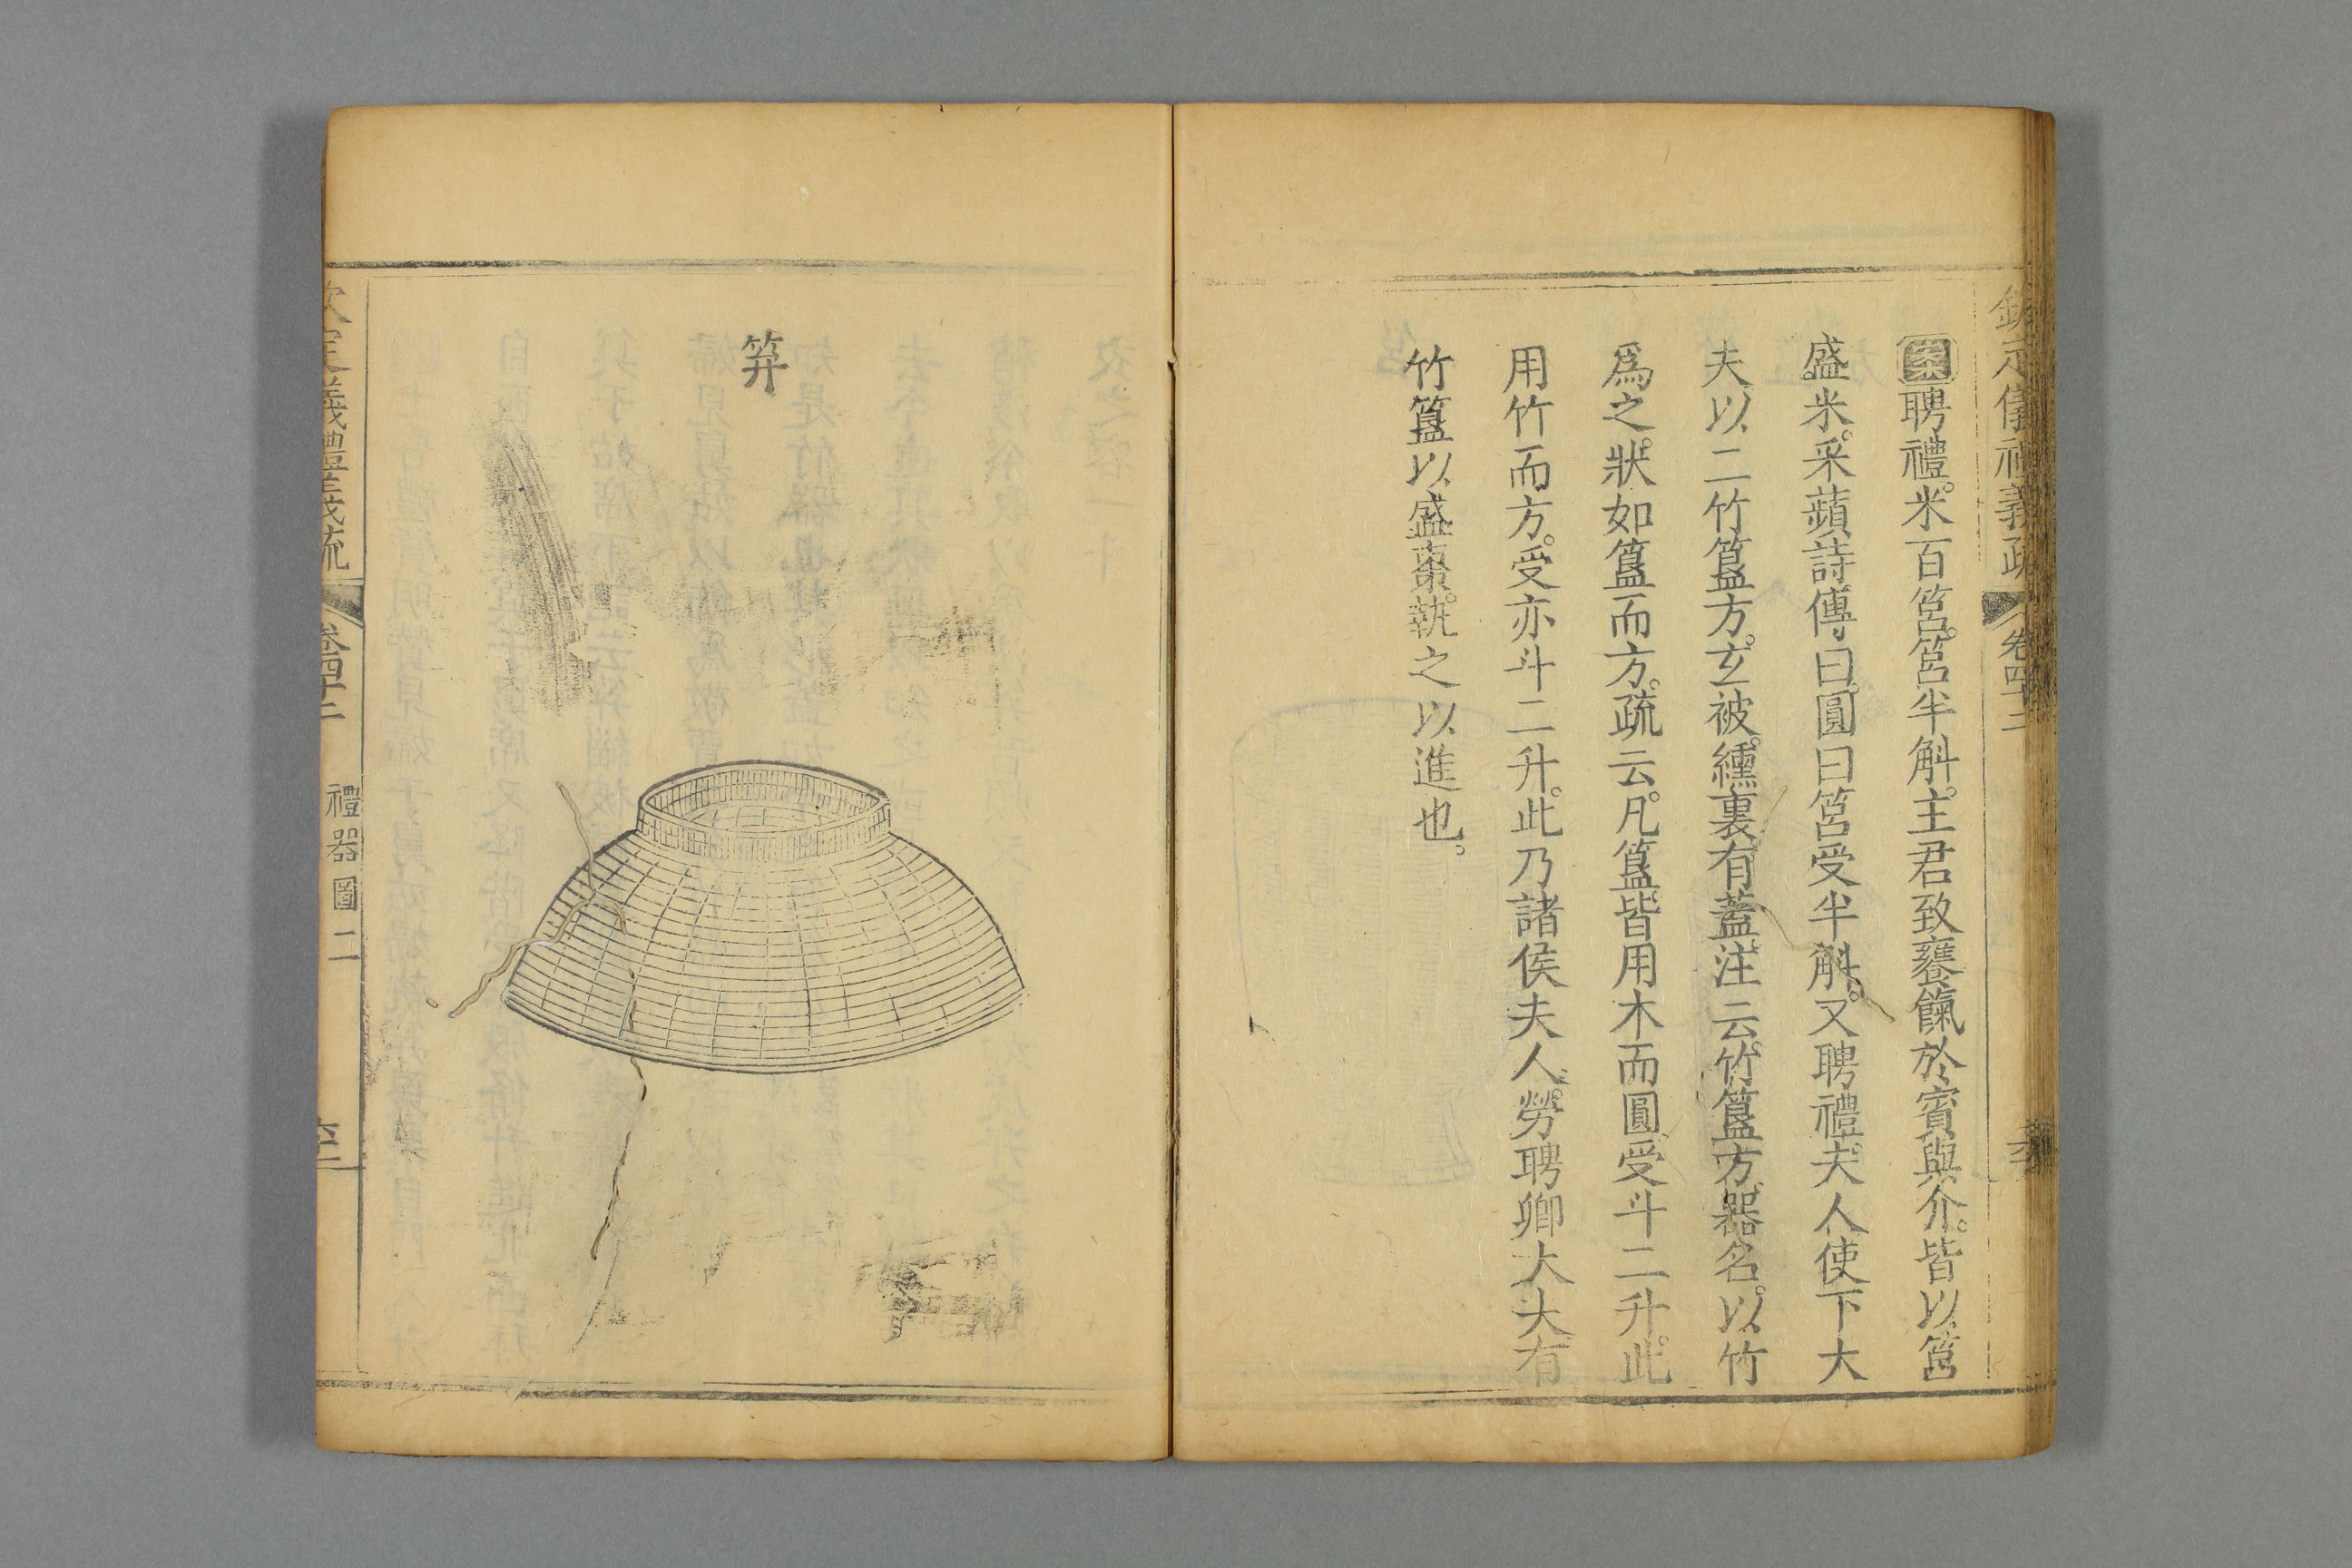 欽定儀禮義疏 卷四十二
案聘禮。米百筥。筥半斛。主君致饔餼於賓與介。皆以筥
盛米。采蘋詩傳曰。圓曰筥。受半斛。又聘禮。夫人使下大
夫以二竹簋方。玄被纁裏。有蓋。注云。竹簋方。器名。以竹
爲之。狀如簋而方。疏云。凡簋皆用木而圓。受斗二升。此
用竹而方。受亦斗二升。此乃諸侯夫人。勞聘卿大夫有
竹簋以盛棗。執之以進也。
笲
欽定儀禮義疏 卷四十二 禮器圖二